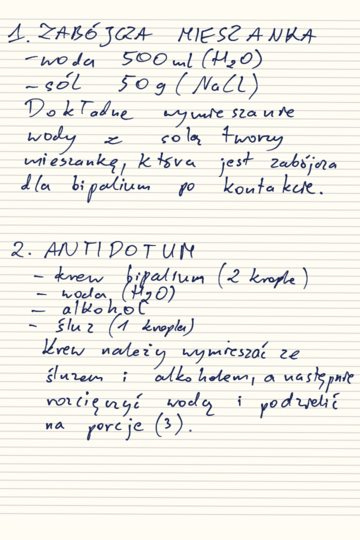 1. ZABÓJCZA MIESZANKA
- woda 500 ml (H₂O)
- sól 50 g (NaCl)
Dokładne wymieszanie
wody z solą tworzy
mieszankę, która jest zabójcza
dla bipalium po kontakcie.
2. ANTIDOTUM
- krew bipalium (2 krople)
- woda (H₂O)
- alkohol
- śluz (1 kropla)
Krew należy wymieszać ze
śluzem i alkoholem, a następnie
rozcięczyć wodą i podzielić
na porcje (3).